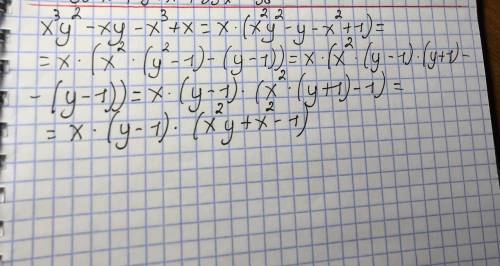 x³y² - xy - x³ + x = x · (x²y² - y - x² + 1) =
= x · (x² · (y² - 1) - (y - 1)) = x · (x² · (y - 1) · (y + 1) -
- (y - 1)) = x · (y - 1) · (x² · (y + 1) - 1) =
= x · (y - 1) · (x²y + x² - 1)